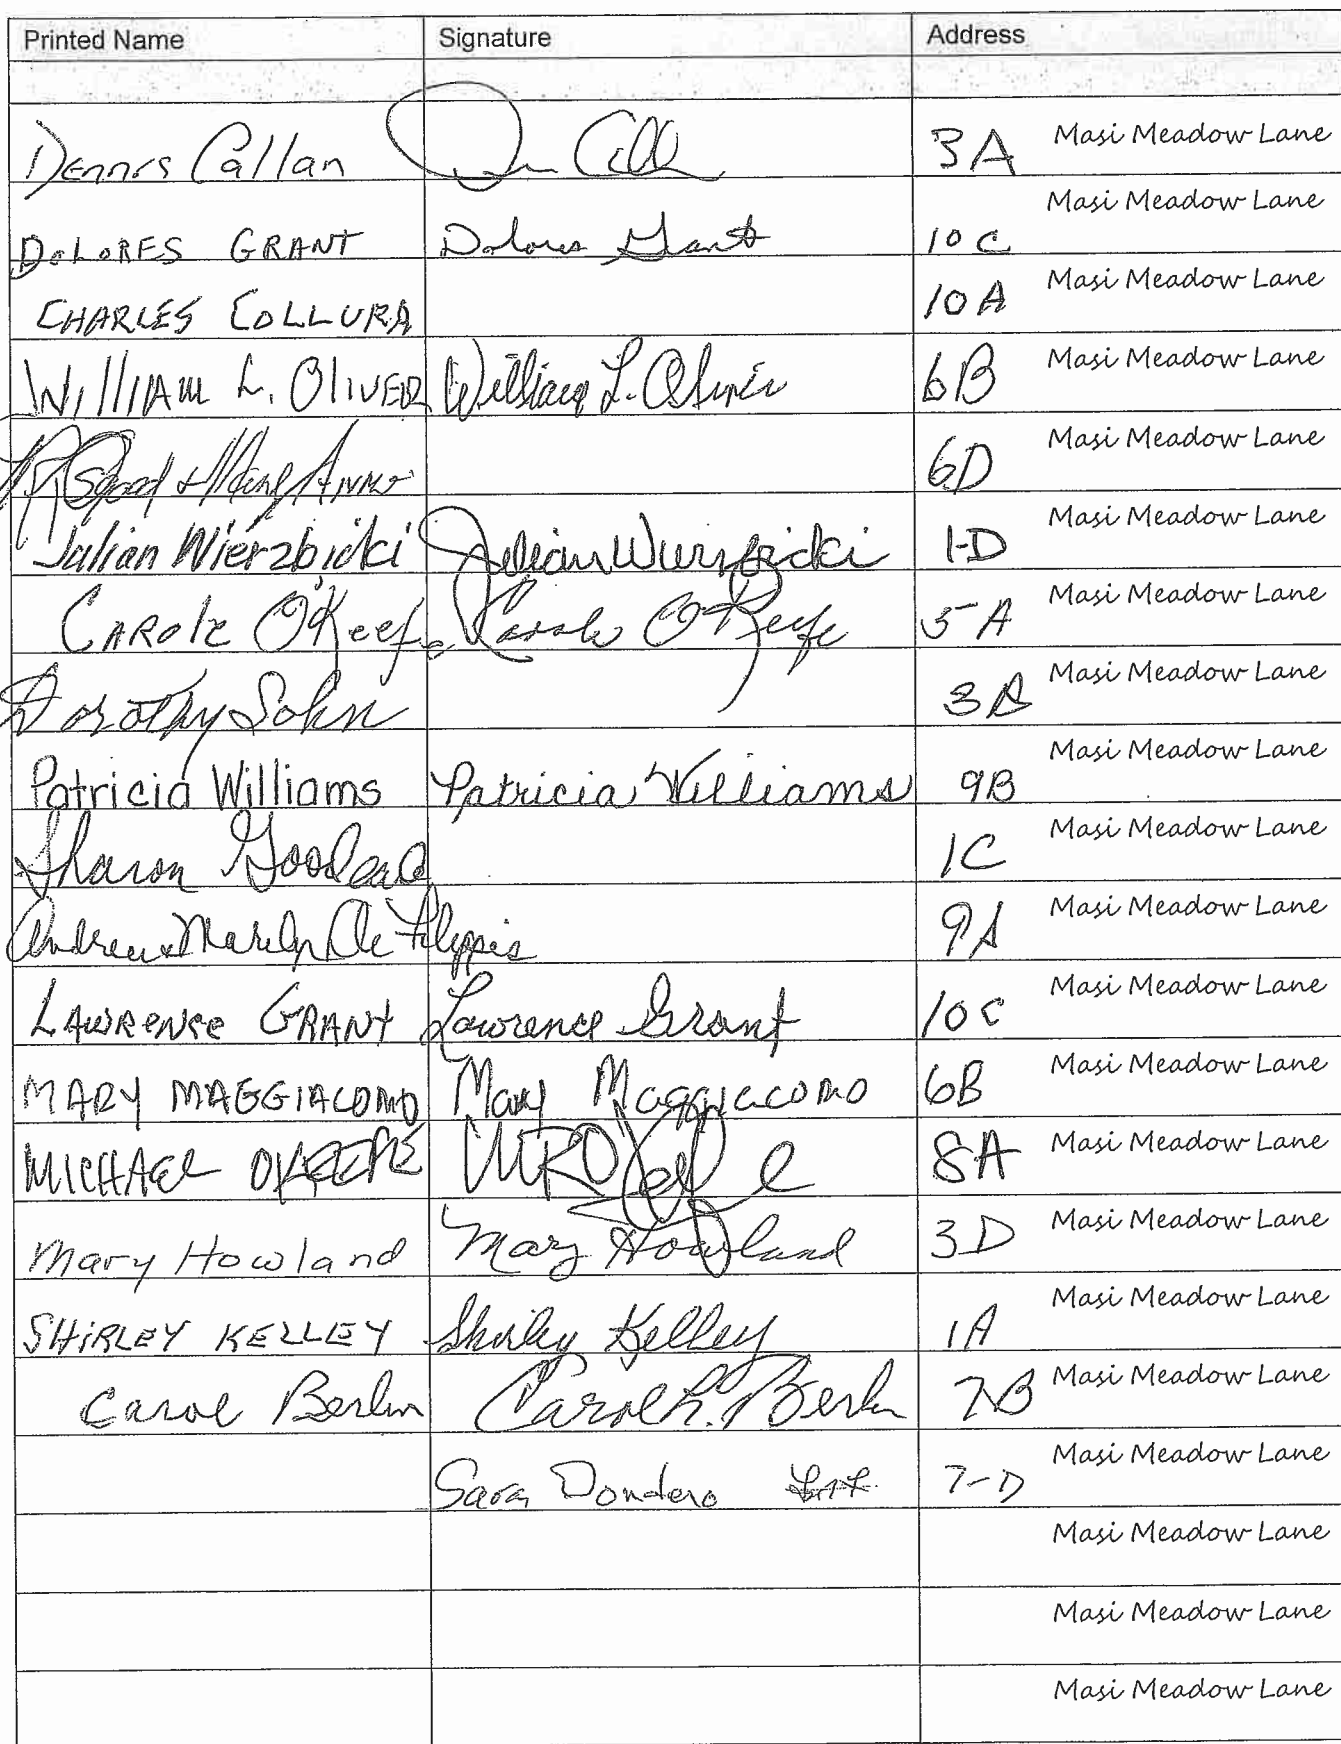 Printed Name Signature Address
Dennis Callan 3A Masi Meadow Lane
DOLORES GRANT Dolores Grant 10C Masi Meadow Lane
CHARLES COLLURA 10A Masi Meadow Lane
WILLIAM L. OLIVER William L. Oliver 6B Masi Meadow Lane
6D Masi Meadow Lane
Julian Wierzbicki Julian Wierzbicki 1-D Masi Meadow Lane
CAROLE O'Keefe Carole O'Keefe 5-A Masi Meadow Lane
Dorothy Sohn 3B Masi Meadow Lane
Patricia Williams Patricia Williams 9B Masi Meadow Lane
Sharon Goodard 1C Masi Meadow Lane
Andrew & Marilyn De Filippis 9A Masi Meadow Lane
LAWRENCE GRANT Lawrence Grant 10C Masi Meadow Lane
MARY MAGGIACOMO Mary Maggiacomo 6B Masi Meadow Lane
MICHAEL OKEEFE 8A Masi Meadow Lane
Mary Howland Mary Howland 3D Masi Meadow Lane
SHIRLEY KELLEY Shirley Kelley 1A Masi Meadow Lane
Carol Berlin Carol L. Berlin 7B Masi Meadow Lane
Sara Dondero 7-D Masi Meadow Lane
Masi Meadow Lane
Masi Meadow Lane
Masi Meadow Lane